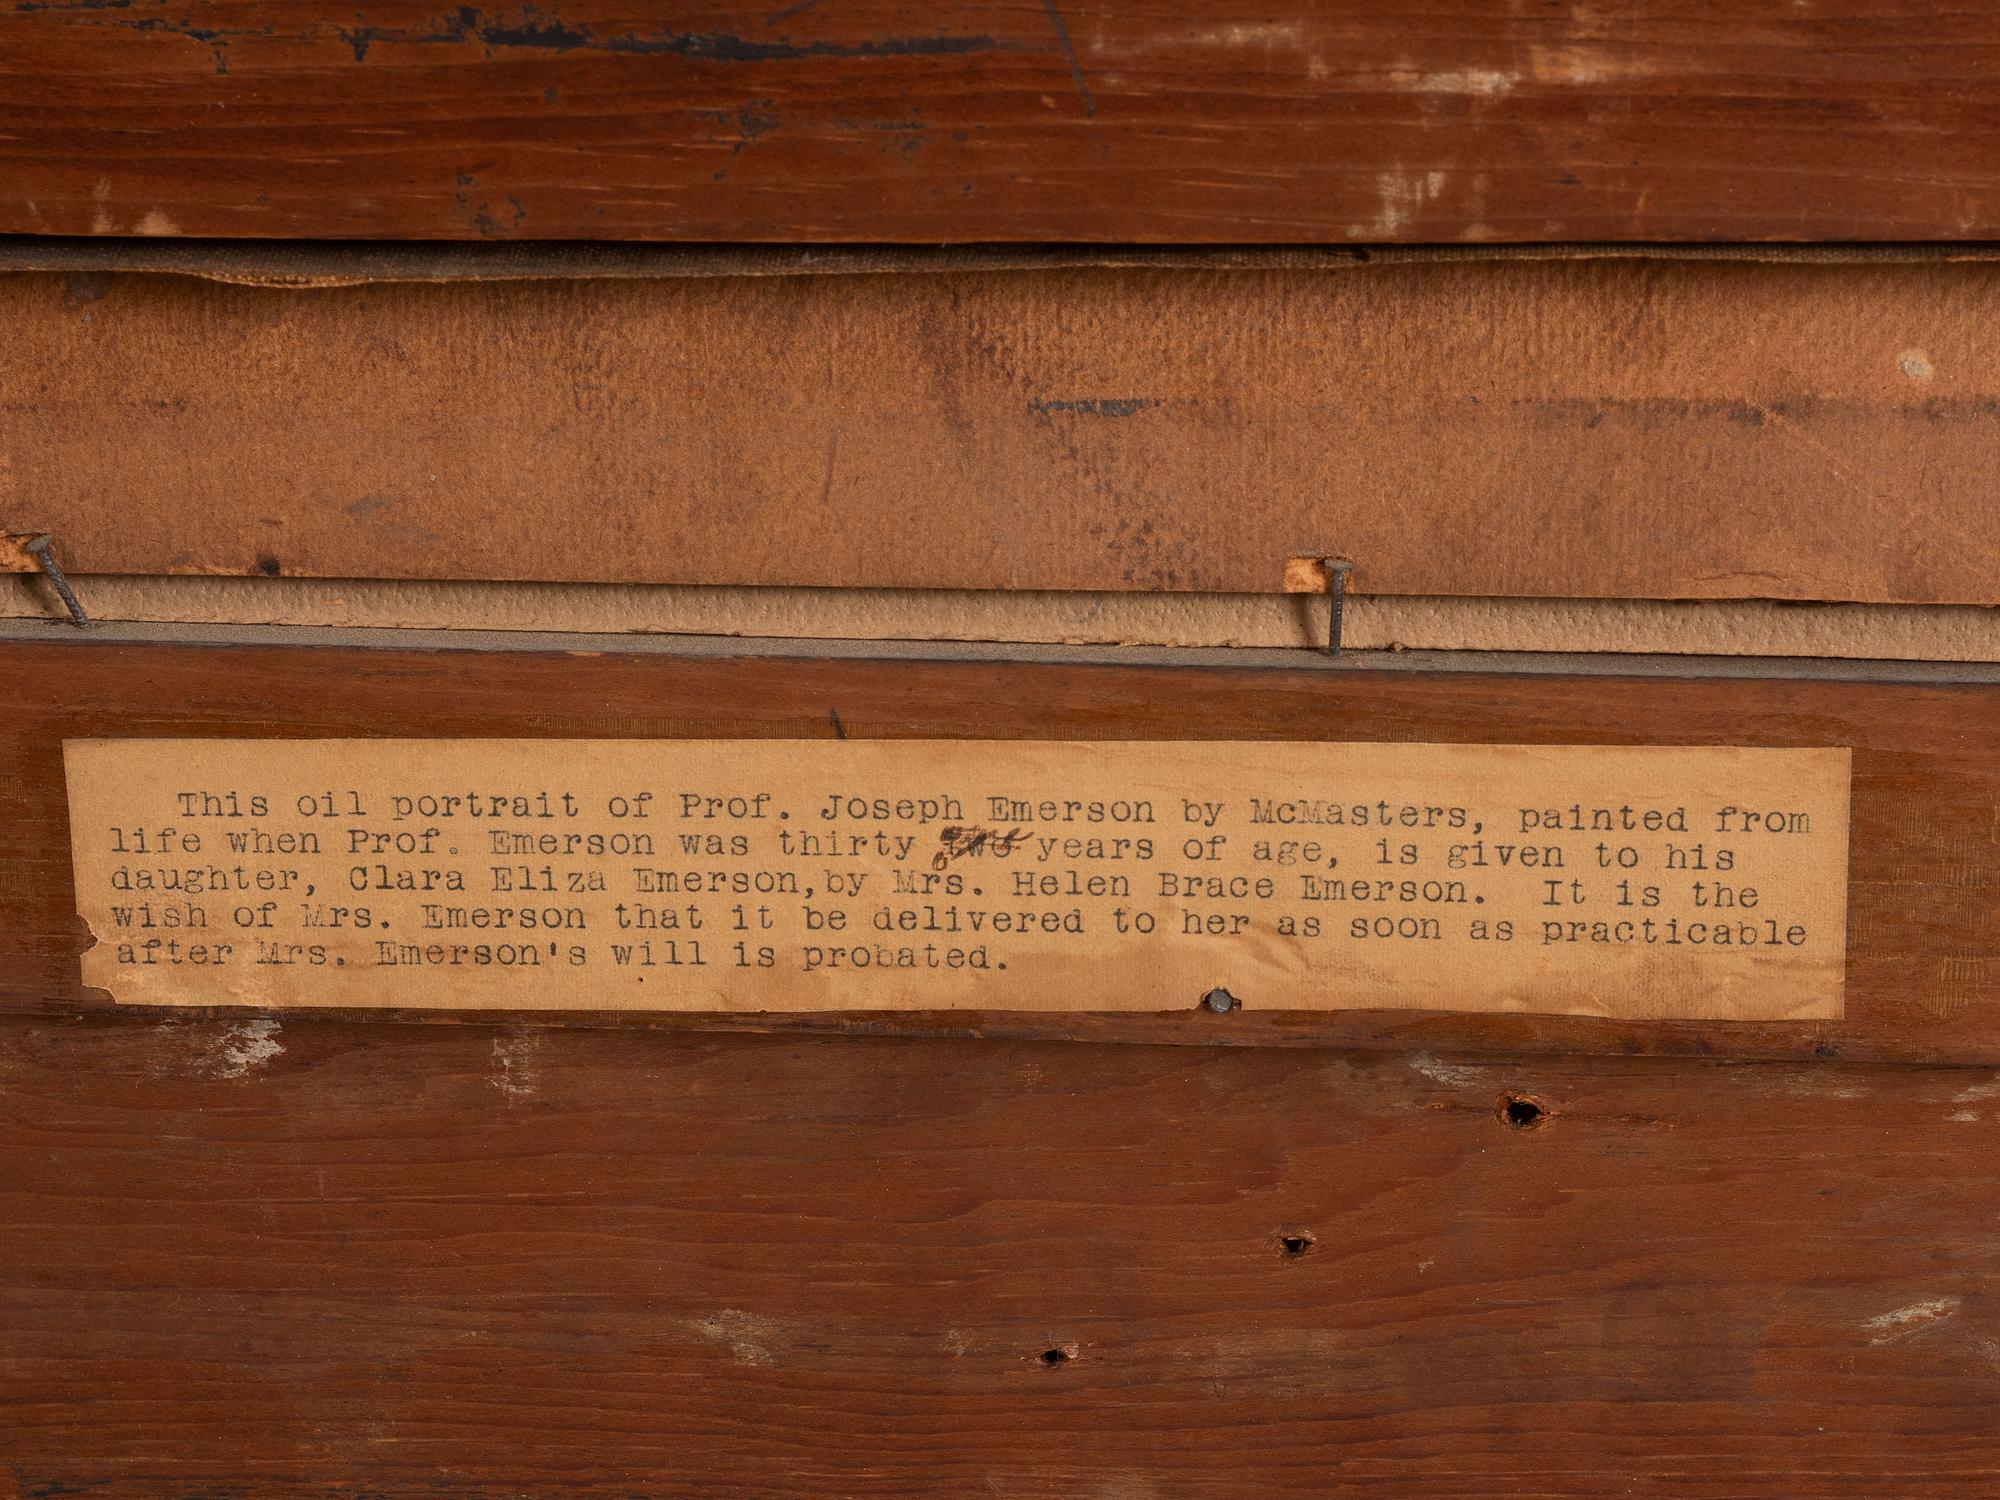 This oil portrait of Prof. Joseph Emerson by McMasters, painted from
life when Prof. Emerson was thirty two years of age, is given to his
daughter, Clara Eliza Emerson,by Mrs. Helen Brace Emerson.  It is the
wish of Mrs. Emerson that it be delivered to her as soon as practicable
after Mrs. Emerson's will is probated.